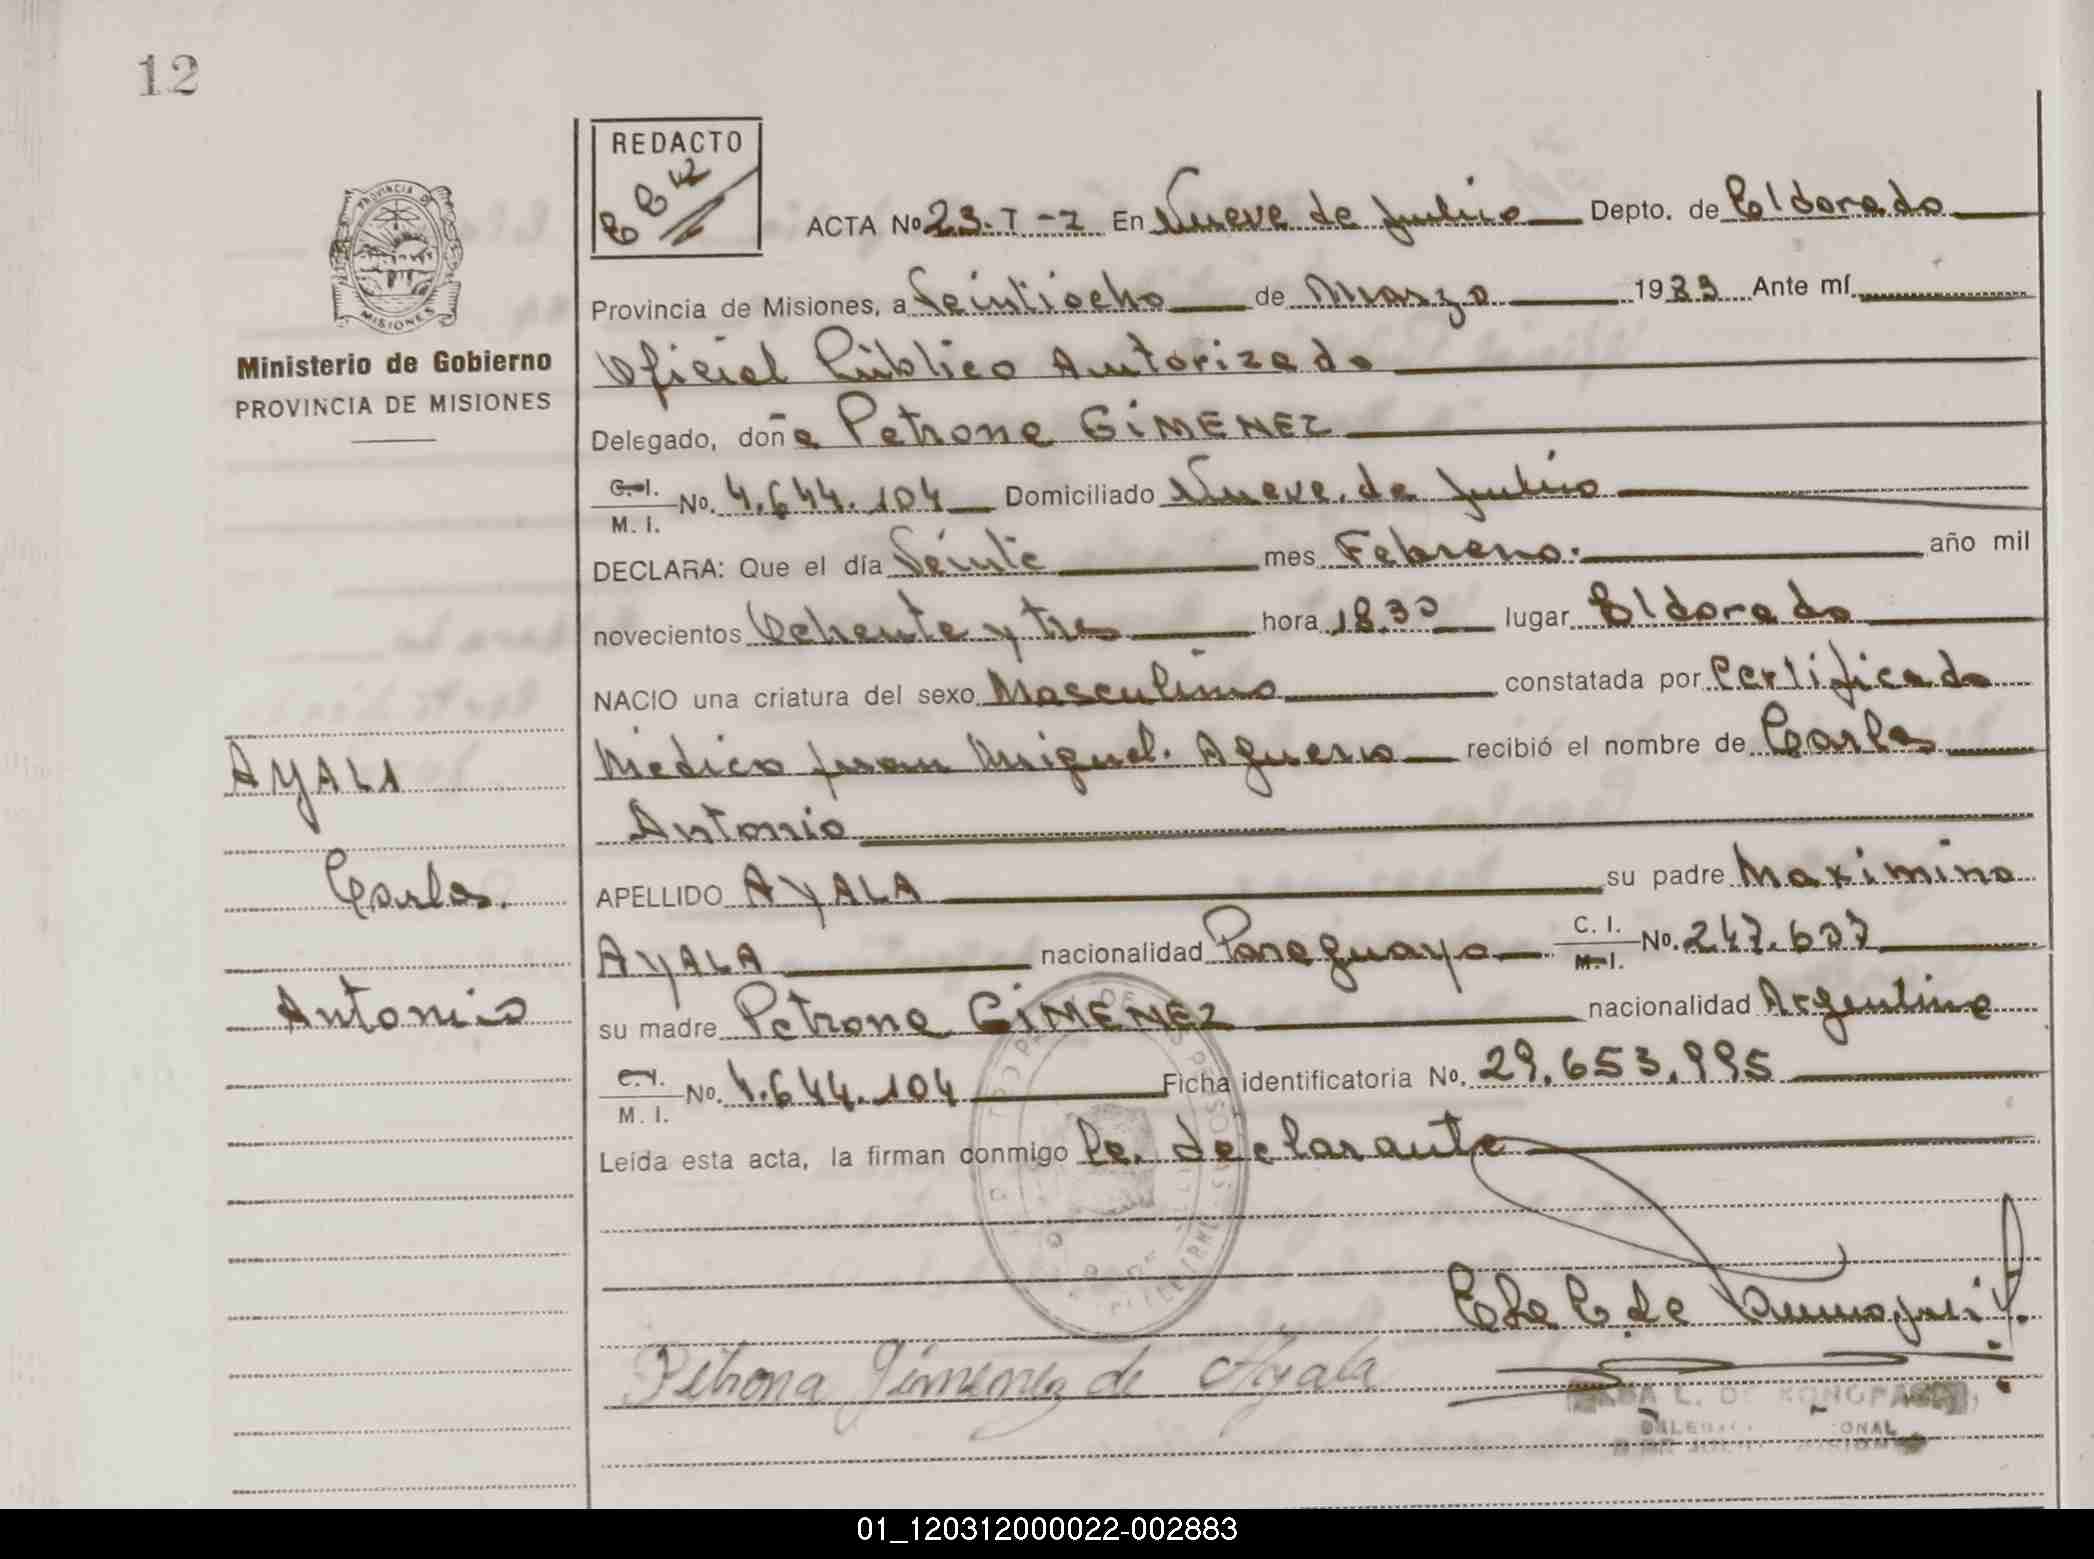 12
REDACTO
PROVINCIA DE
MISIONES
Ministerio de Gobierno
PROVINCIA DE MISIONES
ACTA No 23. T - 2 En Nueve de Julio Depto. de Eldorado
Provincia de Misiones, a Veintiocho de Marzo 1983 Ante mí
Oficial Público Autorizado
Delegado, doña Petrona GIMENEZ
C. I.
M. I.
No. 4.644.104 Domiciliado Nueve de Julio
DECLARA: Que el día Veinte mes Febrero. año mil
novecientos Ochenta y tres hora 18.30 lugar Eldorado
NACIO una criatura del sexo Masculino constatada por Certificado
Médico Juan Miguel. Aguero recibió el nombre de Carlos
Antonio
APELLIDO AYALA su padre Maximino
AYALA nacionalidad Paraguayo C. I.
M. I.
No. 247.637
su madre Petrona GIMENEZ nacionalidad Argentina
C. I.
M. I.
No. 4.644.104 Ficha identificatoria No. 29.653.995
Leída esta acta, la firman conmigo la. declarante
AYALA
Carlos.
Antonio
Petrona Gimenez de Ayala
01_120312000022-002883